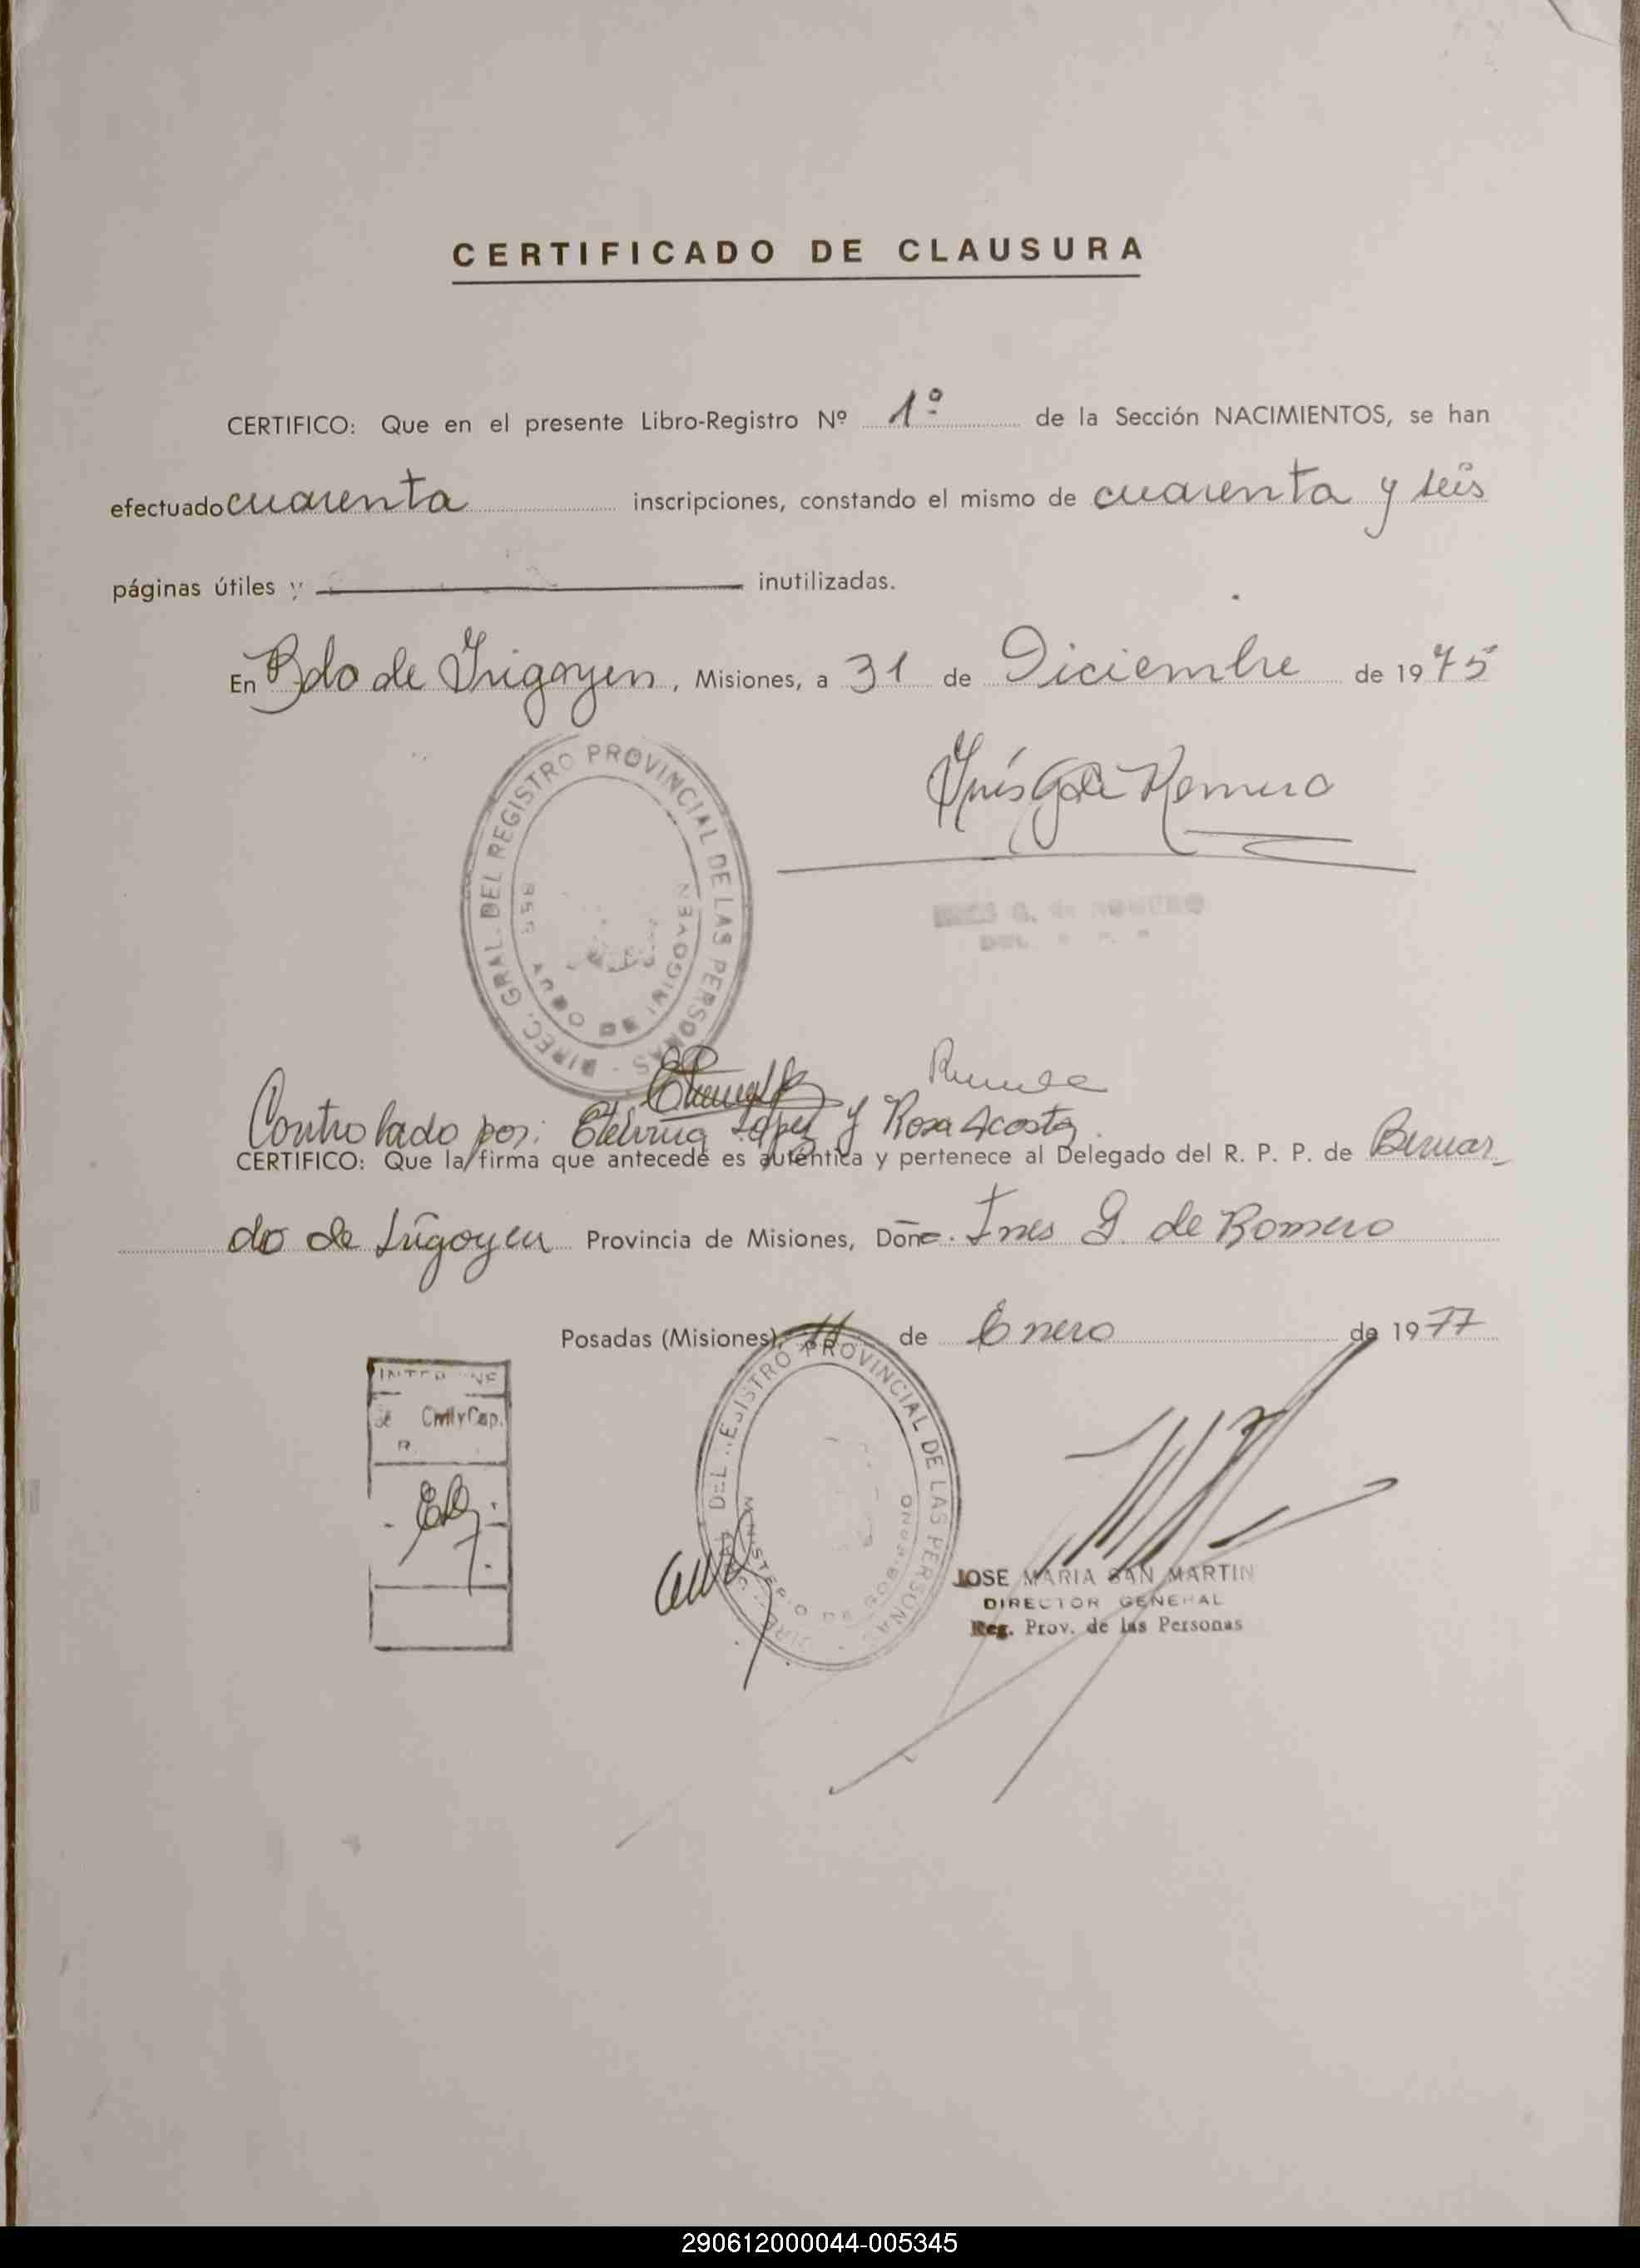 CERTIFICADO DE CLAUSURA
CERTIFICO: Que en el presente Libro-Registro Nº 1º de la Sección NACIMIENTOS, se han
efectuado cuarenta inscripciones, constando el mismo de cuarenta y seis
páginas útiles y inutilizadas.
En Bdo de Irigoyen, Misiones, a 31 de Diciembre de 1975
DIREC. GRAL. DEL REGISTRO PROVINCIAL DE LAS PERSONAS
Inés G de Romero
INES G. de ROMERO
Controlado por: Etelvina López y Rosa Acosta
CERTIFICO: Que la firma que antecede es auténtica y pertenece al Delegado del R. P. P. de Bernar-
do de Irigoyen Provincia de Misiones, Doña. Ines G. de Romero
Posadas (Misiones), 11 de Enero de 1977
Civil y Cap.
DEL REGISTRO PROVINCIAL DE LAS PERSONAS
MINISTERIO DE GOBIERNO
JOSE MARIA SAN MARTIN
DIRECTOR GENERAL
Reg. Prov. de las Personas
290612000044-005345